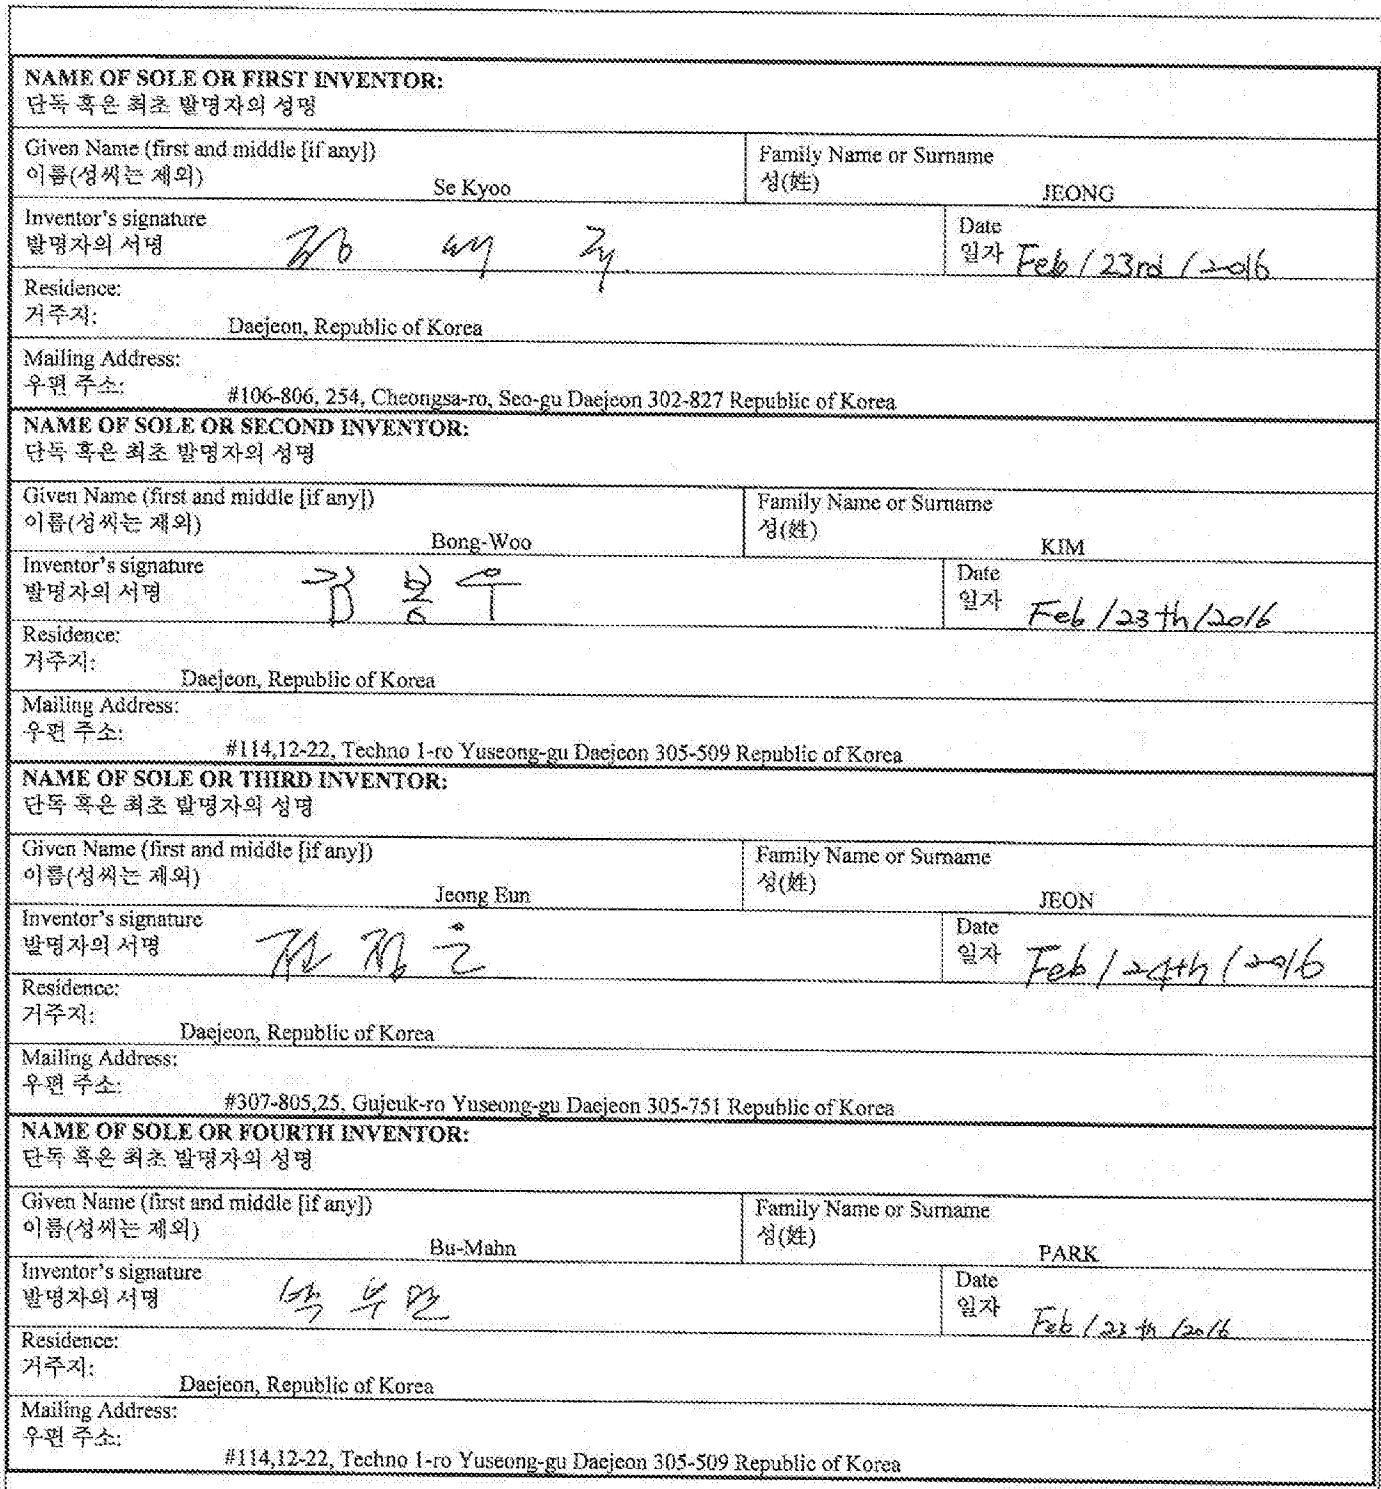 NAME OF SOLE OR FIRST INVENTOR:
단독 혹은 최초 발명자의 성명
Given Name (first and middle [if any])
이름(성씨는 제외)
Se Kyoo
Family Name or Surname
성(姓)
JEONG
Inventor's signature
발명자의 서명
정 세 규
Date
일자 Feb / 23rd / 2016
Residence:
거주지:
Daejeon, Republic of Korea
Mailing Address:
우편 주소:
#106-806, 254, Cheongsa-ro, Seo-gu Daejeon 302-827 Republic of Korea
NAME OF SOLE OR SECOND INVENTOR:
단독 혹은 최초 발명자의 성명
Given Name (first and middle [if any])
이름(성씨는 제외)
Bong-Woo
Family Name or Surname
성(姓)
KIM
Inventor's signature
발명자의 서명
김 봉 우
Date
일자 Feb / 23th / 2016
Residence:
거주지:
Daejeon, Republic of Korea
Mailing Address:
우편 주소:
#114,12-22, Techno 1-ro Yuseong-gu Daejeon 305-509 Republic of Korea
NAME OF SOLE OR THIRD INVENTOR:
단독 혹은 최초 발명자의 성명
Given Name (first and middle [if any])
이름(성씨는 제외)
Jeong Eun
Family Name or Surname
성(姓)
JEON
Inventor's signature
발명자의 서명
전 정 은
Date
일자 Feb / 24th / 2016
Residence:
거주지:
Daejeon, Republic of Korea
Mailing Address:
우편 주소:
#307-805,25, Gujeuk-ro Yuseong-gu Daejeon 305-751 Republic of Korea
NAME OF SOLE OR FOURTH INVENTOR:
단독 혹은 최초 발명자의 성명
Given Name (first and middle [if any])
이름(성씨는 제외)
Bu-Mahn
Family Name or Surname
성(姓)
PARK
Inventor's signature
발명자의 서명
박 부 만
Date
일자 Feb / 23 th / 2016
Residence:
거주지:
Daejeon, Republic of Korea
Mailing Address:
우편 주소:
#114,12-22, Techno 1-ro Yuseong-gu Daejeon 305-509 Republic of Korea